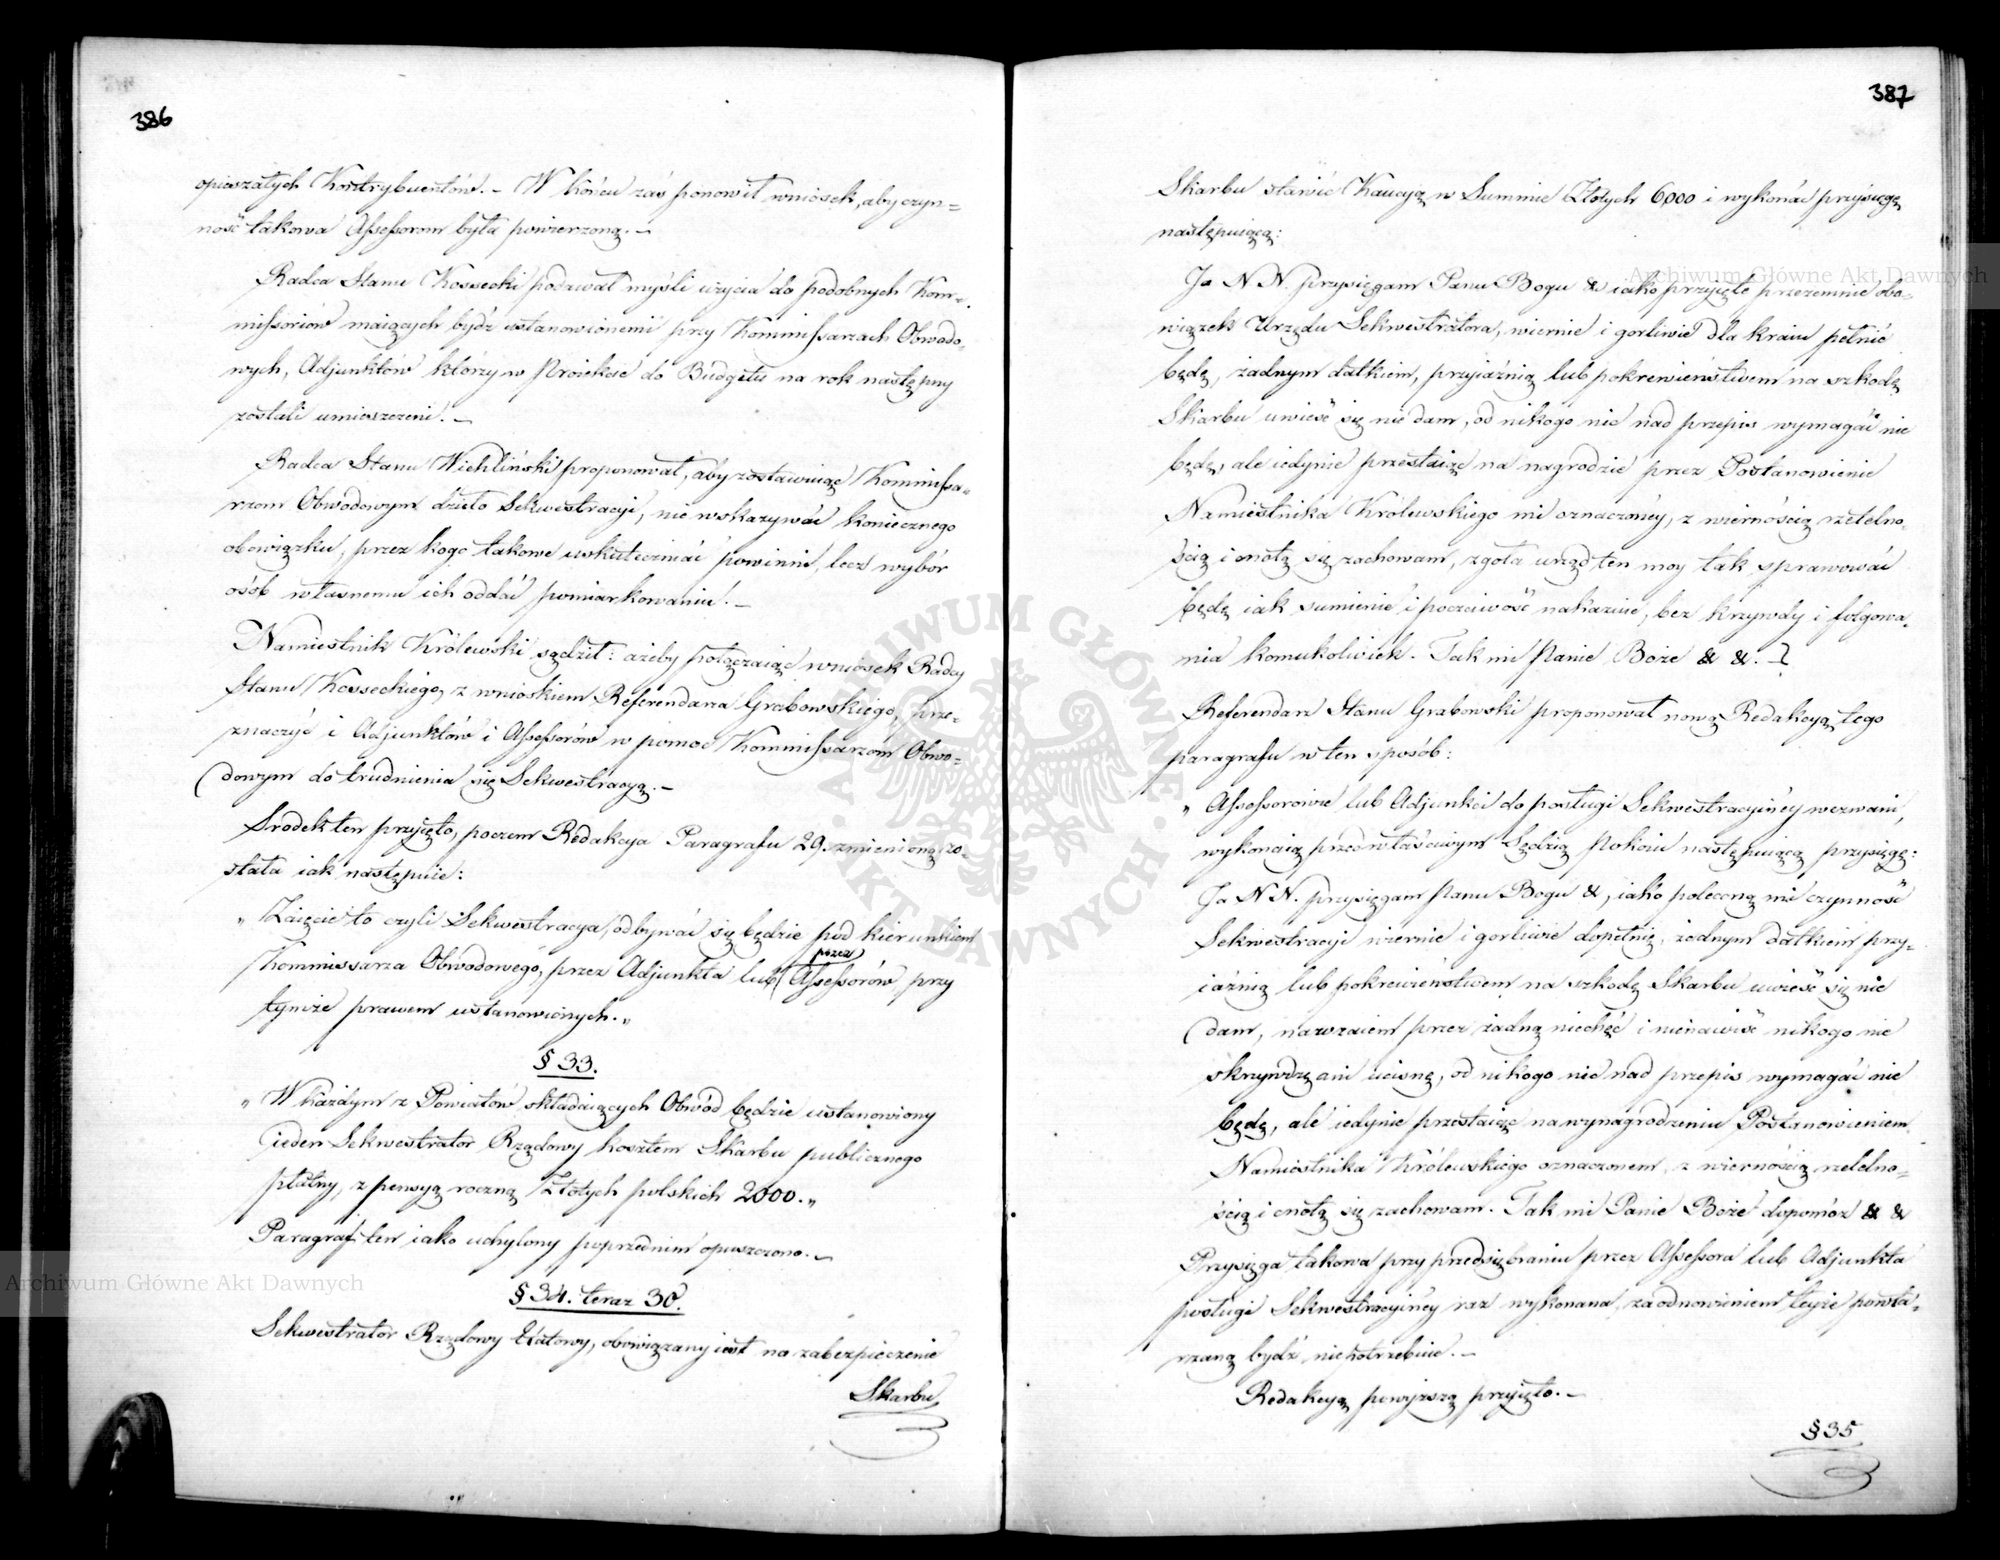 386
opieszałych Kontrybuentów. – W końcu zaś ponowił wniosek, aby czyn=
ność takowa Assessorom była powierzoną. –
Radca Stanu Kossecki podawał myśli użycia do podobnych Kom=
missoriów maiących bydź ustanowionemi przy Kommissarzach Obwodo=
wych, Adjunktów którzy w Proiekcie do Budgetu na rok następny
zostali umieszczeni. –
Radca Stanu Wichliński proponował, aby zostawuiąc Kommissa=
rzom Obwodowym dzieło Sekwestracyi, nie wskazywać koniecznego
obowiązku, przez kogo takowe uskuteczniać powinni, lecz wybór
osób własnemu ich oddać pomiarkowaniu. –
Namiestnik Królewski sądził: ażeby połączaiąc wniosek Radcy
Stanu Kosseckiego, z wnioskiem Referendarza Grabowskiego, prze=
znaczyć i Adjunktów i Assessorów w pomoc Kommissarzom Obwo=
dowym do trudnienia się Sekwestracyą. –
Srodek ten przyięto, poczem Redakcya Paragrafu 29. zmienioną zo=
stała iak następuie:
„ Zaięcie to czyli Sekwestracya, odbywać się będzie pod kierunkiem
Kommissarza Obwodowego, przez Adjunkta lub przez Assessorów przy
tymże prawem ustanowionych. „
§ 33.
„ W każdym z Powiatów składaiących Obwód będzie ustanowiony
ieden Sekwestrator Rządowy kosztem Skarbu publicznego
płatny, z pensyą roczną Złotych polskich 2000. „
Paragraf ten iako uchylony poprzednim opuszczono. –
§ 34. teraz 30.
Sekwestrator Rządowy Etatowy, obowiązany iest na zabezpieczenie
Skarbu
387
Skarbu stawić Kaucyą w Summie Złotych 6000 i wykonać przysięgę
następuiącą:
Ja N N. przysięgam Panu Bogu & iako przyięte przezemnie obo=
wiązek Urzędu Sekwestratora, wiernie i gorliwie dla kraiu pełnić
będę, żadnym datkiem, przyiaźnią lub pokrewieństwem na szkodę
Skarbu uwieść się nie dam, od nikogo nic nad przepis wymagać nie
będę, ale iedynie przestaię na nagrodzie przez Postanowienie
Namiestnika Królewskiego mi oznaczoney, z wiernością rzetelno=
ścią i cnotą się zachowam, zgoła urząd ten moy tak sprawować
będę iak sumienie i poczciwość nakazuie, bez krzywdy i folgowa=
nia komukolwiek. Tak mi Panie Boże & &.
Referendarz Stanu Grabowski proponował nową Redakcyą tego
paragrafu w ten sposób:
„ Assessorowie lub Adjunkci do posługi Sekwestracyiney wezwani,
wykonaią przed właściwym Sędzią Pokoiu następuiącą przysięgę:
Ja N N. przysięgam Panu Bogu &, iako poleconą mi czynność
Sekwestracyi wiernie i gorliwie dopełnię, żadnym datkiem przy=
iaźnią lub pokrewieństwem na szkodę Skarbu uwieść się nie
dam, nawzaiem przez żadną niechęć i nienawiść nikogo nie
skrzywdzę ani ucisnę, od nikogo nic nad przepis wymagać nie
będę, ale iedynie przestaiąc na wynagrodzeniu Postanowieniem
Namiestnika Królewskiego oznaczonem, z wiernością rzetelno=
ścią i cnotą się zachowam. Tak mi Panie Boże dopomóz & &
Przysięga takowa przy przedsiębraniu przez Assessora lub Adjunkta
posługi Sekwestracyiney raz wykonana, za odnowieniem teyże powta=
rzaną bydź nie potrzebuie. –
Redakcyą powyższą przyięto. –
§ 35
Archiwum Główne Akt Dawnych
Archiwum Główne Akt Dawnych
ARCHIWUM GŁÓWNE AKT DAWNYCH